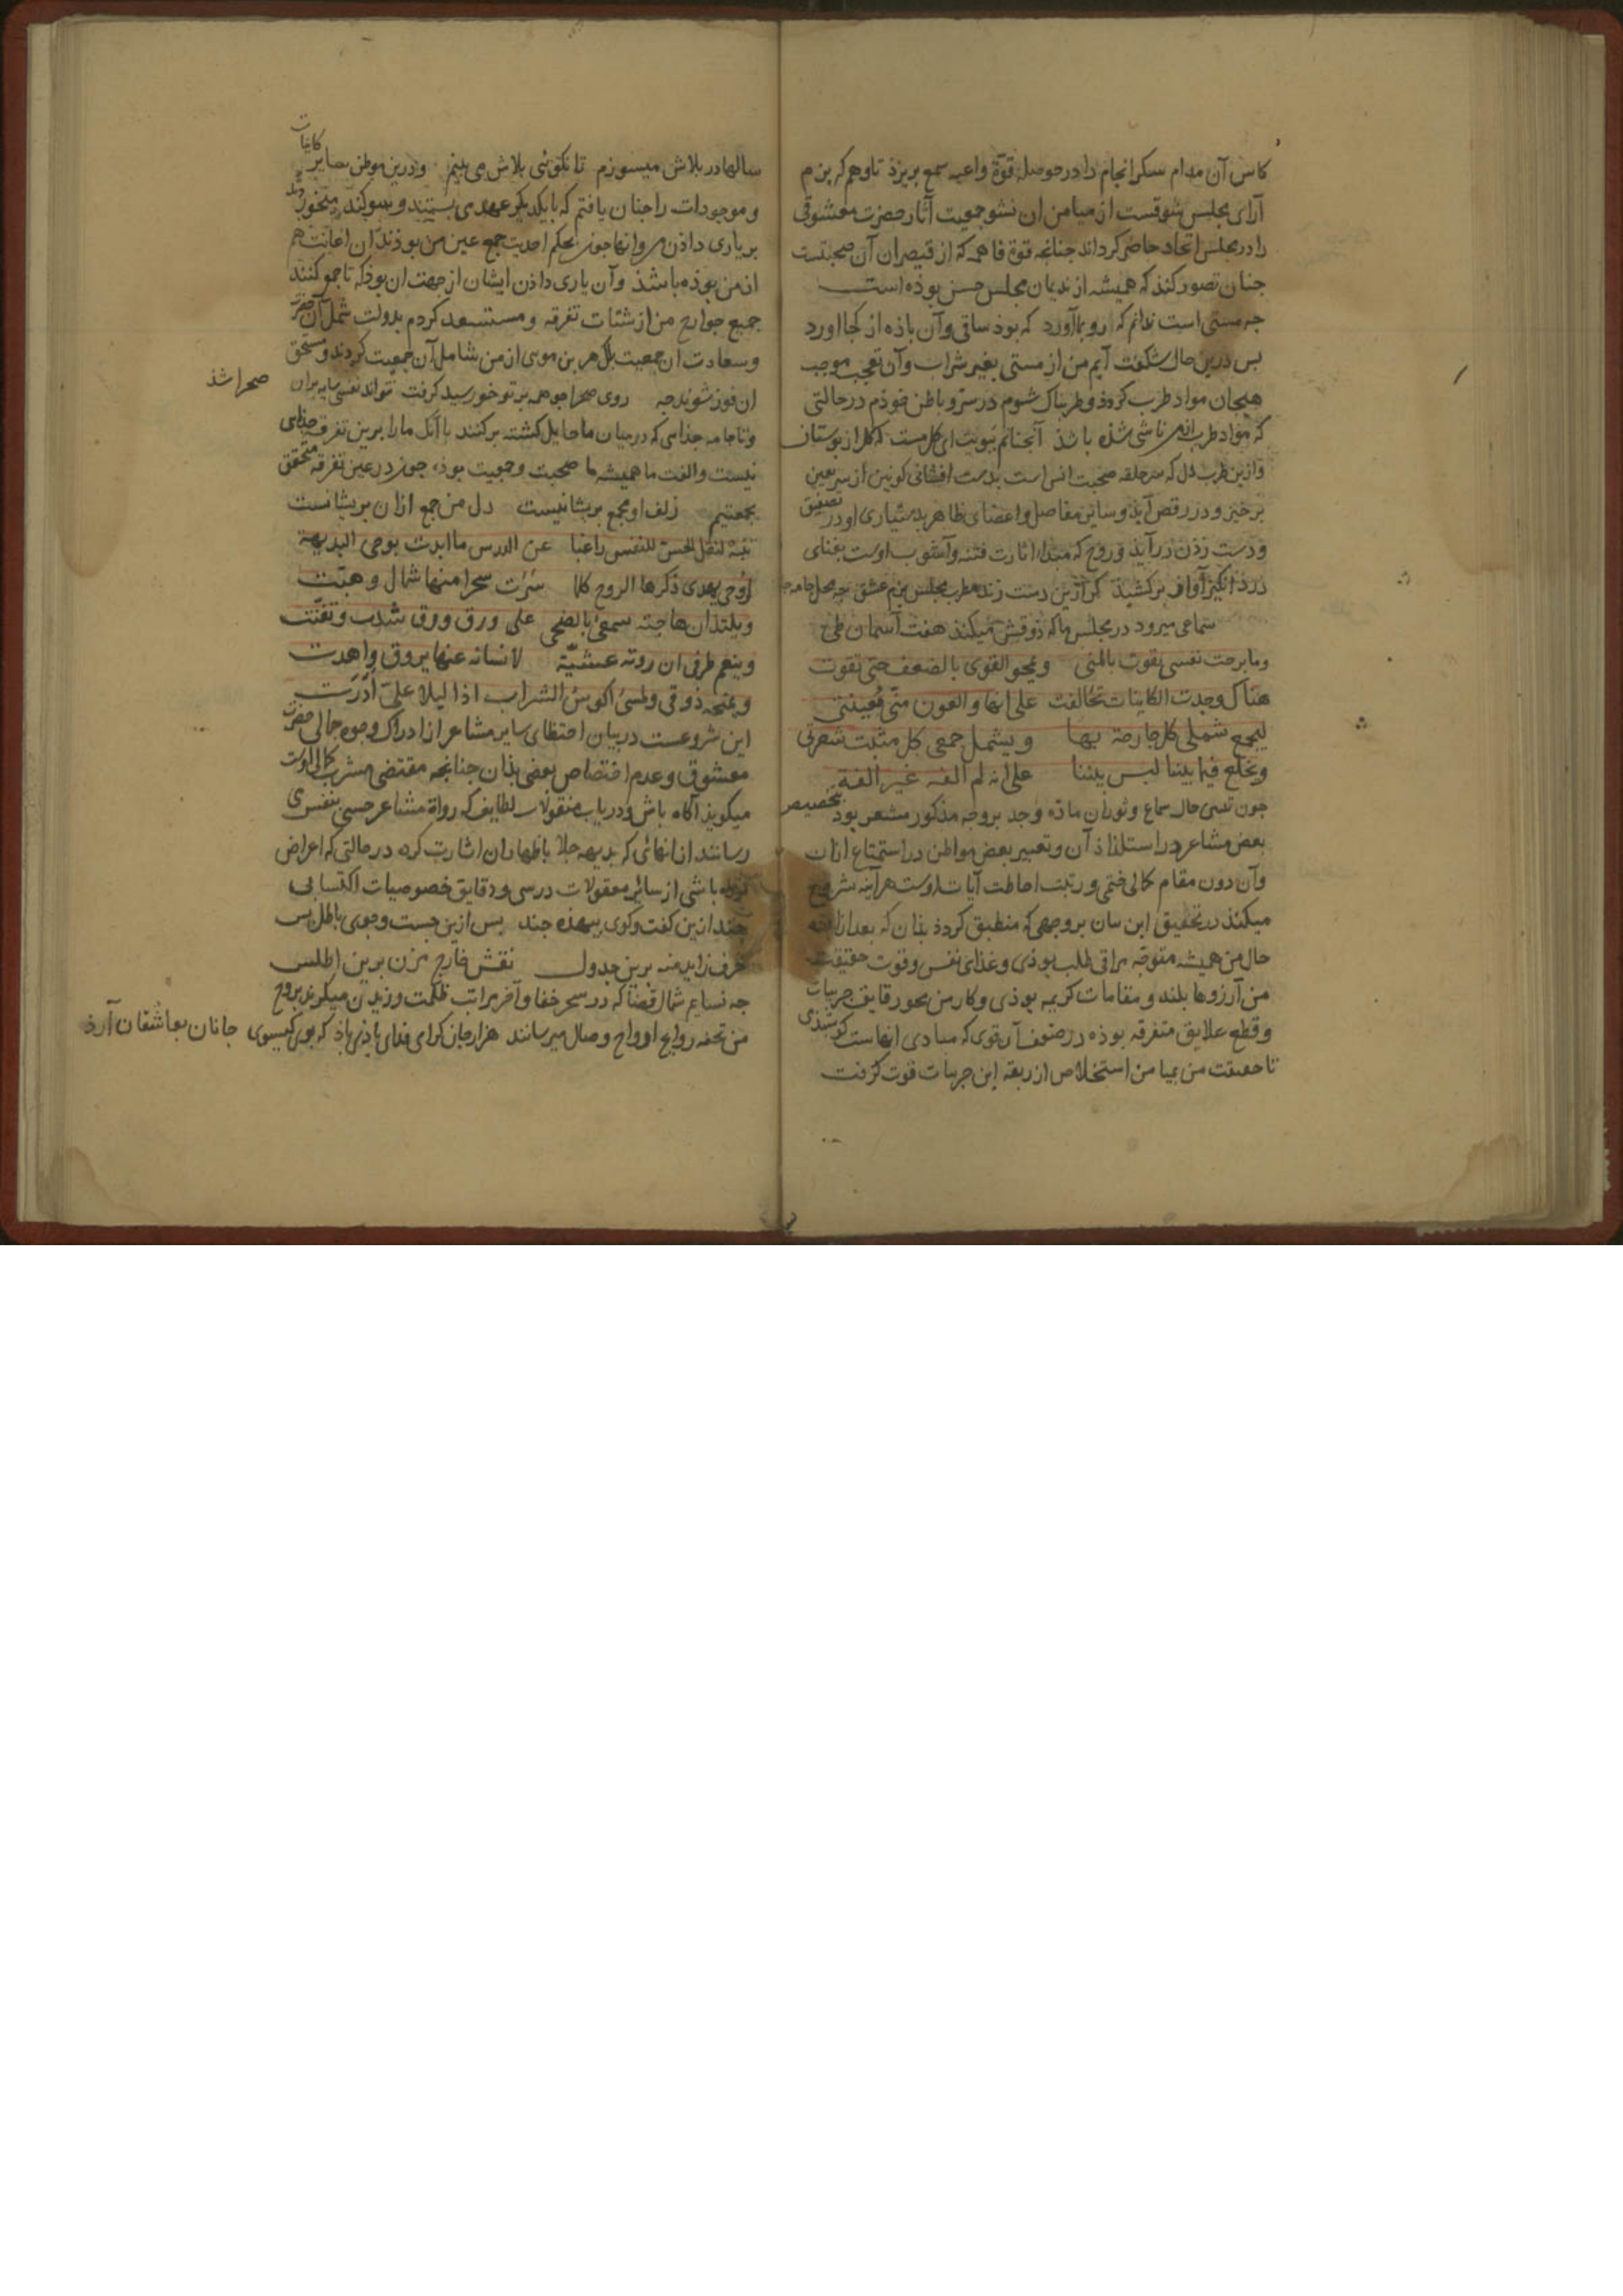 کاس آن مدام سکرانجام را در حوصله قوة واعیه سمع بریزد تا وهم که بزم
آرای مجلس شوقست از میامن ان نشو جمعیت آثار حضرت معشوقی
را در مجلس اتحاد حاضر کرداند جنانجه قوة فاهمه که از آن صحبتست
جنان تصور کند که همیشه از ندیمان مجلس حسن بوده است
جه مستی است ندانم که رو بما آورد که بوذ ساقی وآن باذه از کجا اورد
بس درین حال شکفت آیم من از مستی بغیر شراب وآن تعجب موجب
هیجان مواد طرب کردذ و طربناک شوم در سر و باطن خوذم در حالتی
که مواد طرب ناشی شذه باشذ آنجنانم ببویت ای کل مست که کل از بوستان
وازین طرب دل که سر حلقه صحبت انس است بدست افشانی کونین از سر یقین
برخیزد و در رقص آیذ و سایر مفاصل و اعضای ظاهر بدستیاری او در تصفیق
و دست زذن درآیذ و روح که مبداء اثارت فتنه وآشوب اوست بغنای
درد انکیز آواز برکشیذ کر ازین دست زند مطرب مجلس بزم عشق جه محل جامه
سماعی میرود در مجلس ما که ذوقش میکند هفت آسمان طی
وما برحت نفسی تقوت بالمنی وتمحو القوی بالضعف حتی تقوت
هناک وجدت الکاینات تحالفت علی انها والعون منی معینتی
لیجمع شملی کل جارحة بها ویشمل جمعی کل منبت شعرتی
ویخلع فیما بیننا لبس بیننا علی انه لم الفه غیر الفة
جون حال سماع و ثوران مادة وجد بر وجه مذکور مشعر بود بتخصیص
بعض مشاعر در استلذاذ آن و تعبیر بعض مواطن در استمتاع ازان
وآن دون مقام کمالی ختمی و رتبت احاطت آیات اوست هرآینه شروع
میکند در تحقیق این بیان بر وجهی که منطبق کردد بذان که بعد از
حال من همیشه متوجه مراقی طلب بوذی و غذای نفس وقوت حقیقت
من آرزوها بلند و مقامات کریمه بوذی و کار من محو رقایق جزییات
و قطع علایق متفرقه بوذه در صنوف قوی که مبادی انهاست کوشیذی
تا حقیقت من بمیامن استخلاص از ربقه این جزییات قوت کرفت
سالها در بلاش میسوزم تا نکوئی بلاش می بینم ودرین موطن سایر کاینات
وموجودات را جنان یافتم که با یکدیکر عهدی بستند و سوکند
بر یاری داذن من وانها جون بحکم احدیت جمع عین من بوذند ان اعانت هم
از من بوذه باشذ وآن یاری داذن ایشان از جهت ان بوذ که تا جمع کنند
جمیع جوارح من از شتات تفرقه و مستسعد کردم بدولت شمل آن حضرت
وسعادت ان جمعیت بلک هر بن موی از من شامل آن جمعیت کردند و مستحق
ان فوز شوند جه روی صحرا جو همه برتو خورشید کرفت نتواند نفسی سایه بران صحرا شذ
وتا جامه جذایی که درمیان ما حایل کشته برکنند با آنک ما را برین تفرقه جذایی
نیست والفت ما همیشه ما صحبت وجمعیت بوذه جون در عین تفرقه متحقق
بجمعتیم زلف او مجمع بریشانیست دل من جمع ازان بریشانست
تنبه لنقل الحس للنفس راغبا عن الدرس ما ابدت بوحی البدیهة
لروحی یهدی ذکرها الروح کلما سرت سحرا منها شمال وهبت
ویلتذ ان هاجته سمعی بالضحی علی ورق ورق شدت وتغنت
وینعم طرفی ان روته عشیة لانسانه عنها بروق واهدت
ویمنحه ذوقی ولمسی اکوس الشراب اذا لیلا علی ادرت
این شروعست در بیان احتظای سایر مشاعر از ادراک وجوه جمالی حضرت
معشوق وعدم اختصاص بعضی بذان جنانجه مقتضی مشرب کمالی اوست
میکوید آکاه باش و دریاب منقولات لطایف که رواة مشاعر حسی بنفس
رسانند ازانهائی که بدیهه جلا باظهار ان اشارت کرده در حالتی که اعراض
باشی از سایر معقولات درسی و دقایق خصوصیات اکتسابی
جند ازین کفت وکوی بیهذه جند بس ازین جست وجوی باطل بس
حرف زاید منه برین جدول نقش خارج مزن برین اطلس
جه نسایم شمال قضا که در سحر خفا وآخر مراتب ظلمت وزیدن میکیرد بروح
من تحفه روایح ارواح وصال میرسانند هزار جان کرامی فدای باذی باذ که بوی کیسوی جانان بعاشقان آرذ